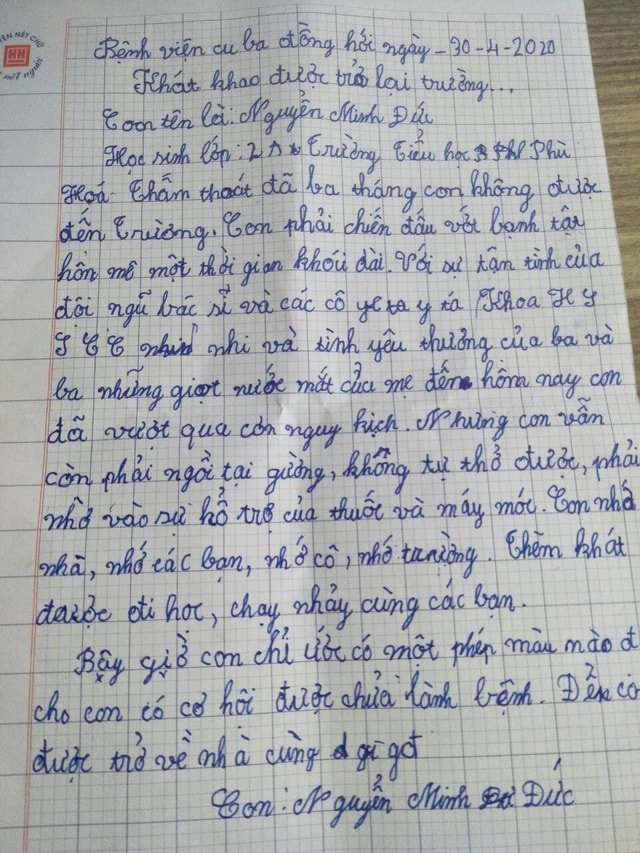 ỆN NÉT CHỮ
NẾT NGƯỜI
Bệnh viện cu ba đồng hới ngày - 30 - 4 - 2020
Khát khao được trở lại trường...
Con tên là: Nguyễn Minh Đức
Học sinh lớp: 2 Trường Tiểu học Phù
Hoá. Thấm thoát đã ba tháng con không được
đến trường. Con phải chiến đấu với bạnh tật
hôn mê một thời gian khóu dài. Với sự tận tình của
đội ngũ bác sĩ và các cô y tá Khoa
nhi và tình yêu thương của ba và
ba những giọt nước mắt của mẹ đến hôm nay con
đã vượt qua cơn nguy kịch. Nhưng con vẫn
còn phải ngồi tại giường, không tự thở được, phải
nhờ vào sự hổ trợ của thuốc và máy móc. Con nhớ
nhà, nhớ các bạn, nhớ cô, nhớ trường. Thèm khát
được đi học, chạy nhảy cùng các bạn.
Bậy giờ con chỉ ước có một phép màu nào đ
cho con có cơ hội được chửa lành bệnh. Để co
được trở về nhà cùng gi gđ
Con: Nguyễn Minh Đức